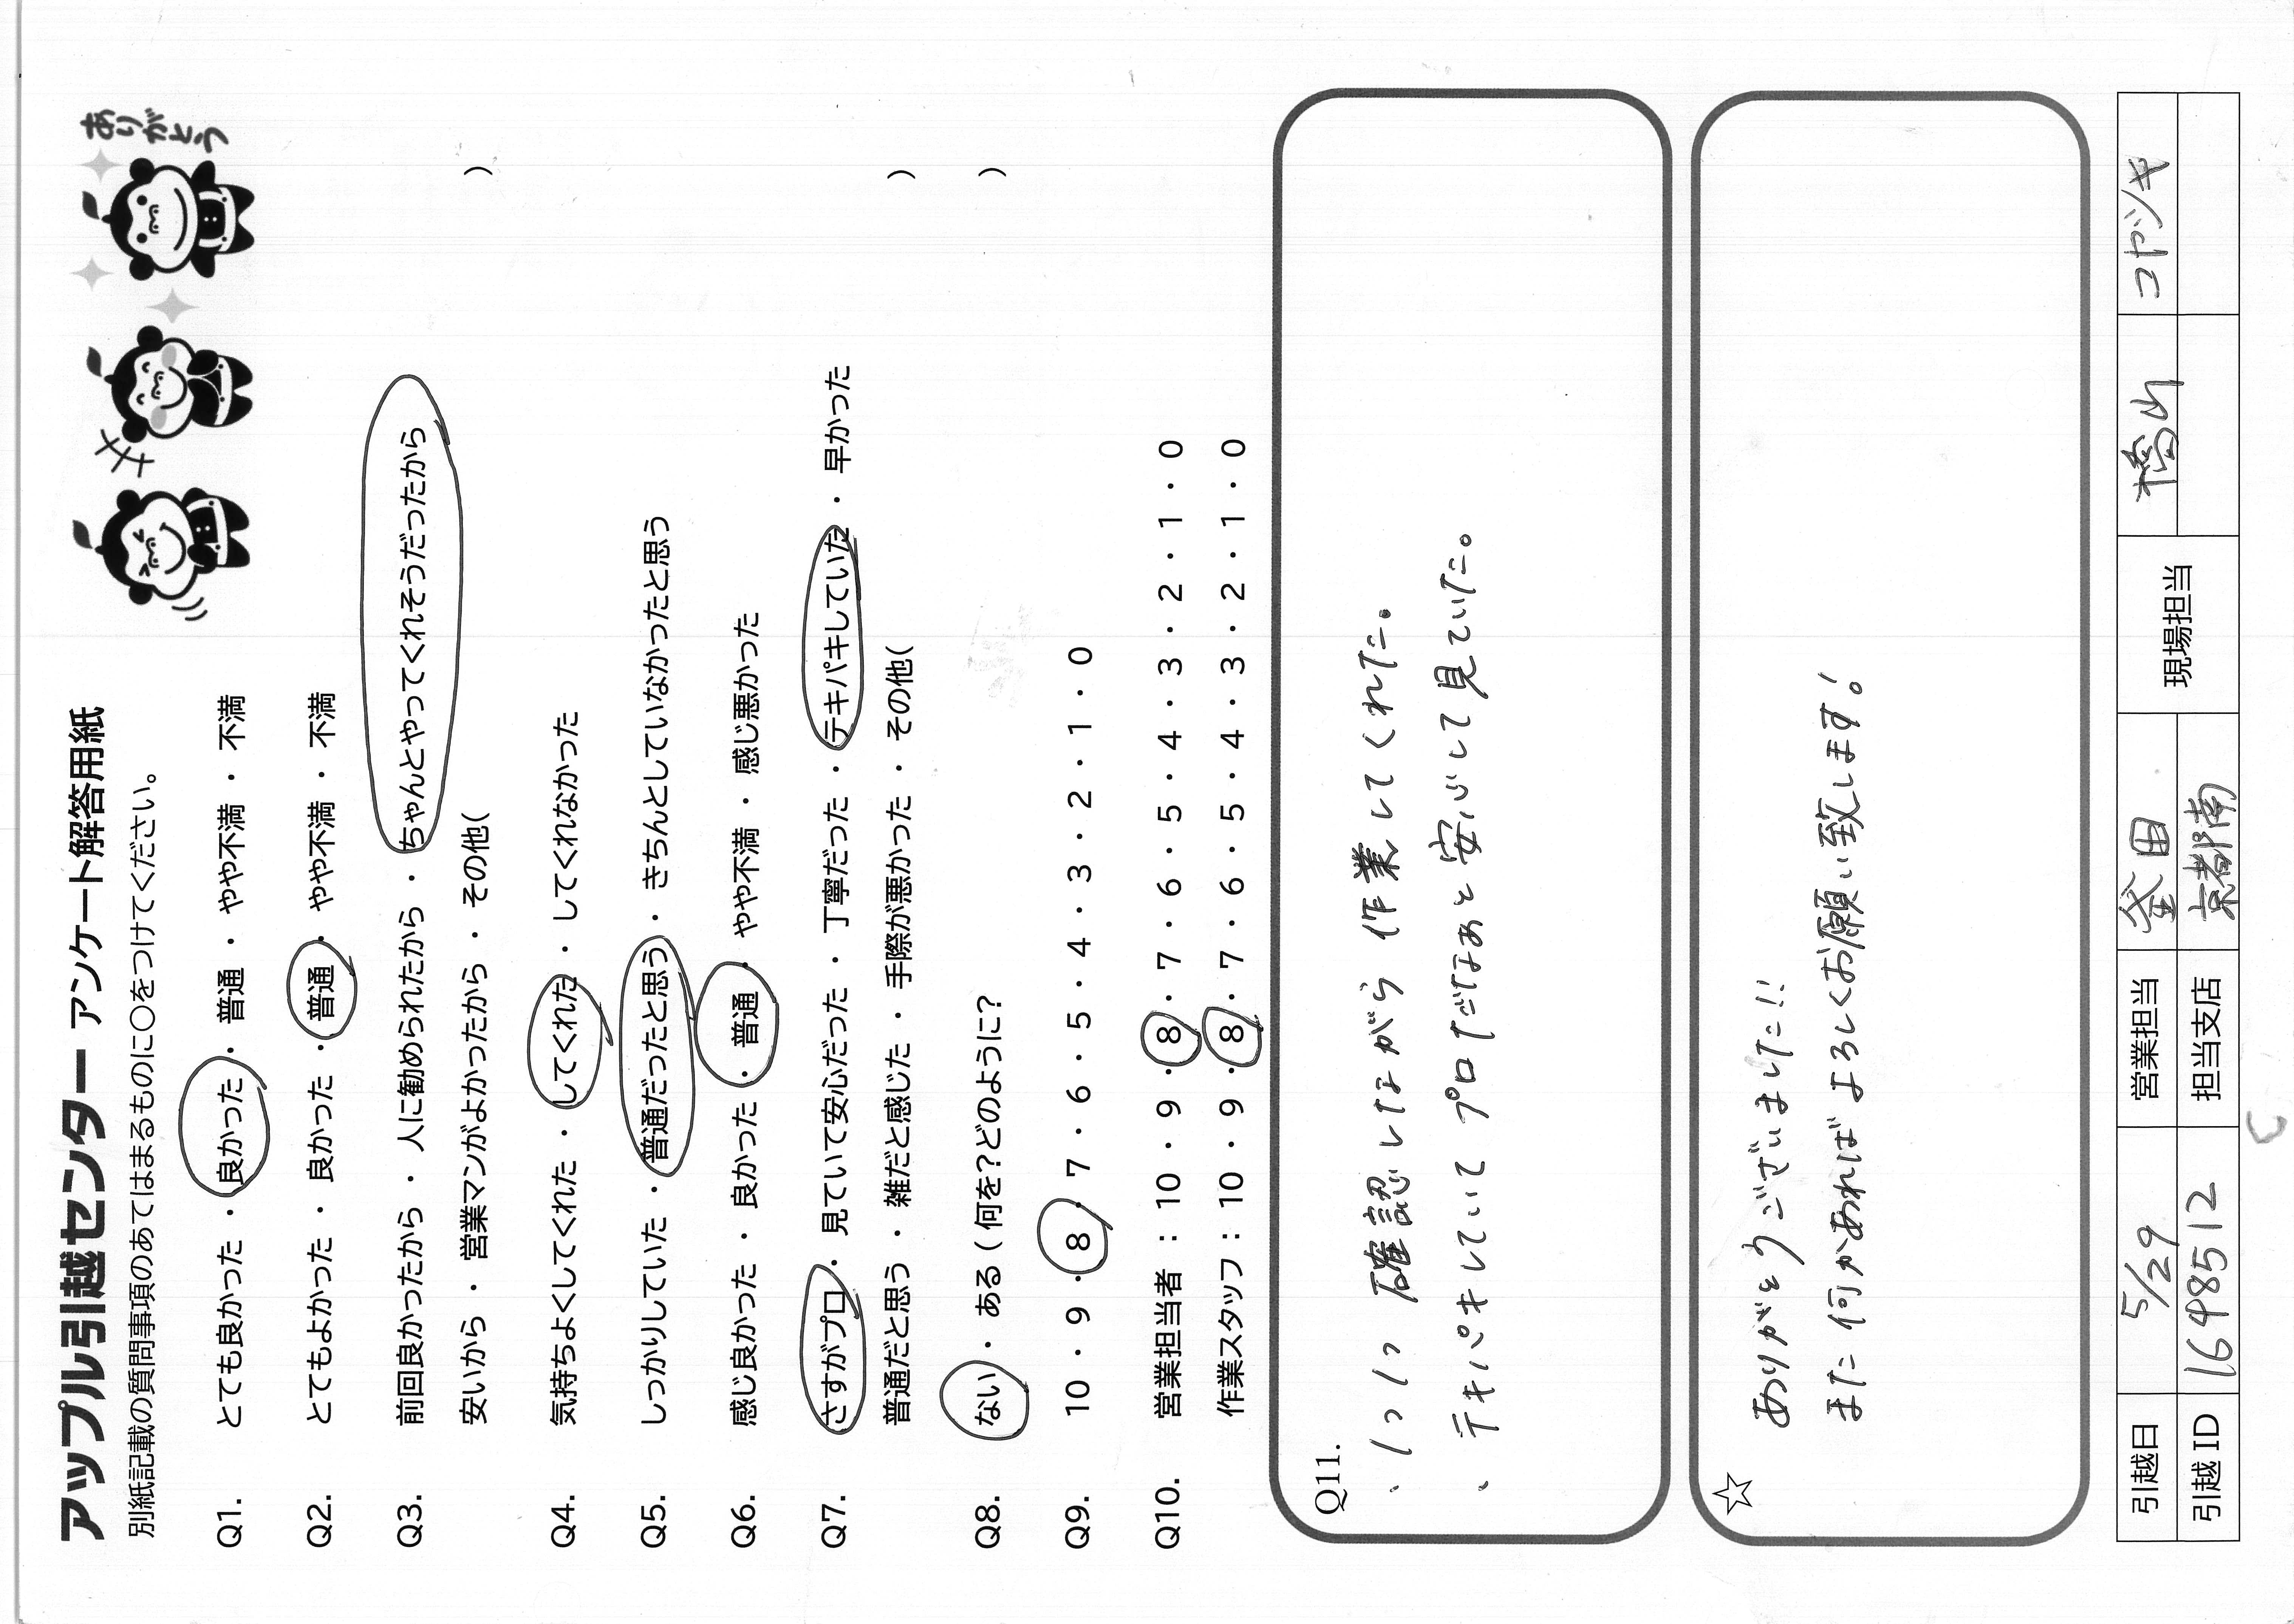 アップル引越センター アンケート解答用紙
ありがとう
別紙記載の質問事項のあてはまるものに〇をつけてください。
Q1. とても良かった ・ 良かった ・ 普通 ・ やや不満 ・ 不満
Q2. とてもよかった ・ 良かった ・ 普通 ・ やや不満 ・ 不満
Q3. 前回良かったから ・ 人に勧められたから ・ ちゃんとやってくれそうだったから
安いから ・ 営業マンがよかったから ・ その他( )
Q4. 気持ちよくしてくれた ・ してくれた ・ してくれなかった
Q5. しっかりしていた ・ 普通だったと思う ・ きちんとしていなかったと思う
Q6. 感じ良かった ・ 良かった ・ 普通 ・ やや不満 ・ 感じ悪かった
Q7. さすがプロ ・ 見ていて安心だった ・ 丁寧だった ・ テキパキしていた ・ 早かった
普通だと思う ・ 雑だと感じた ・ 手際が悪かった ・ その他( )
Q8. ない ・ ある ( 何を?どのように? )
Q9. 10 ・ 9 ・ 8 ・ 7 ・ 6 ・ 5 ・ 4 ・ 3 ・ 2 ・ 1 ・ 0
Q10. 営業担当者 : 10 ・ 9 ・ 8 ・ 7 ・ 6 ・ 5 ・ 4 ・ 3 ・ 2 ・ 1 ・ 0
作業スタッフ : 10 ・ 9 ・ 8 ・ 7 ・ 6 ・ 5 ・ 4 ・ 3 ・ 2 ・ 1 ・ 0
Q11.
、1つ1つ 確認しながら 作業してくれた。
、テキパキしていて プロだなぁと安心して見ていた。
☆
ありがとうございました!!
また何かあればよろしくお願い致します!
引越日 5/29 営業担当 釜田 現場担当 橋山 コヤツキ
引越 ID 1698512 担当支店 京都南